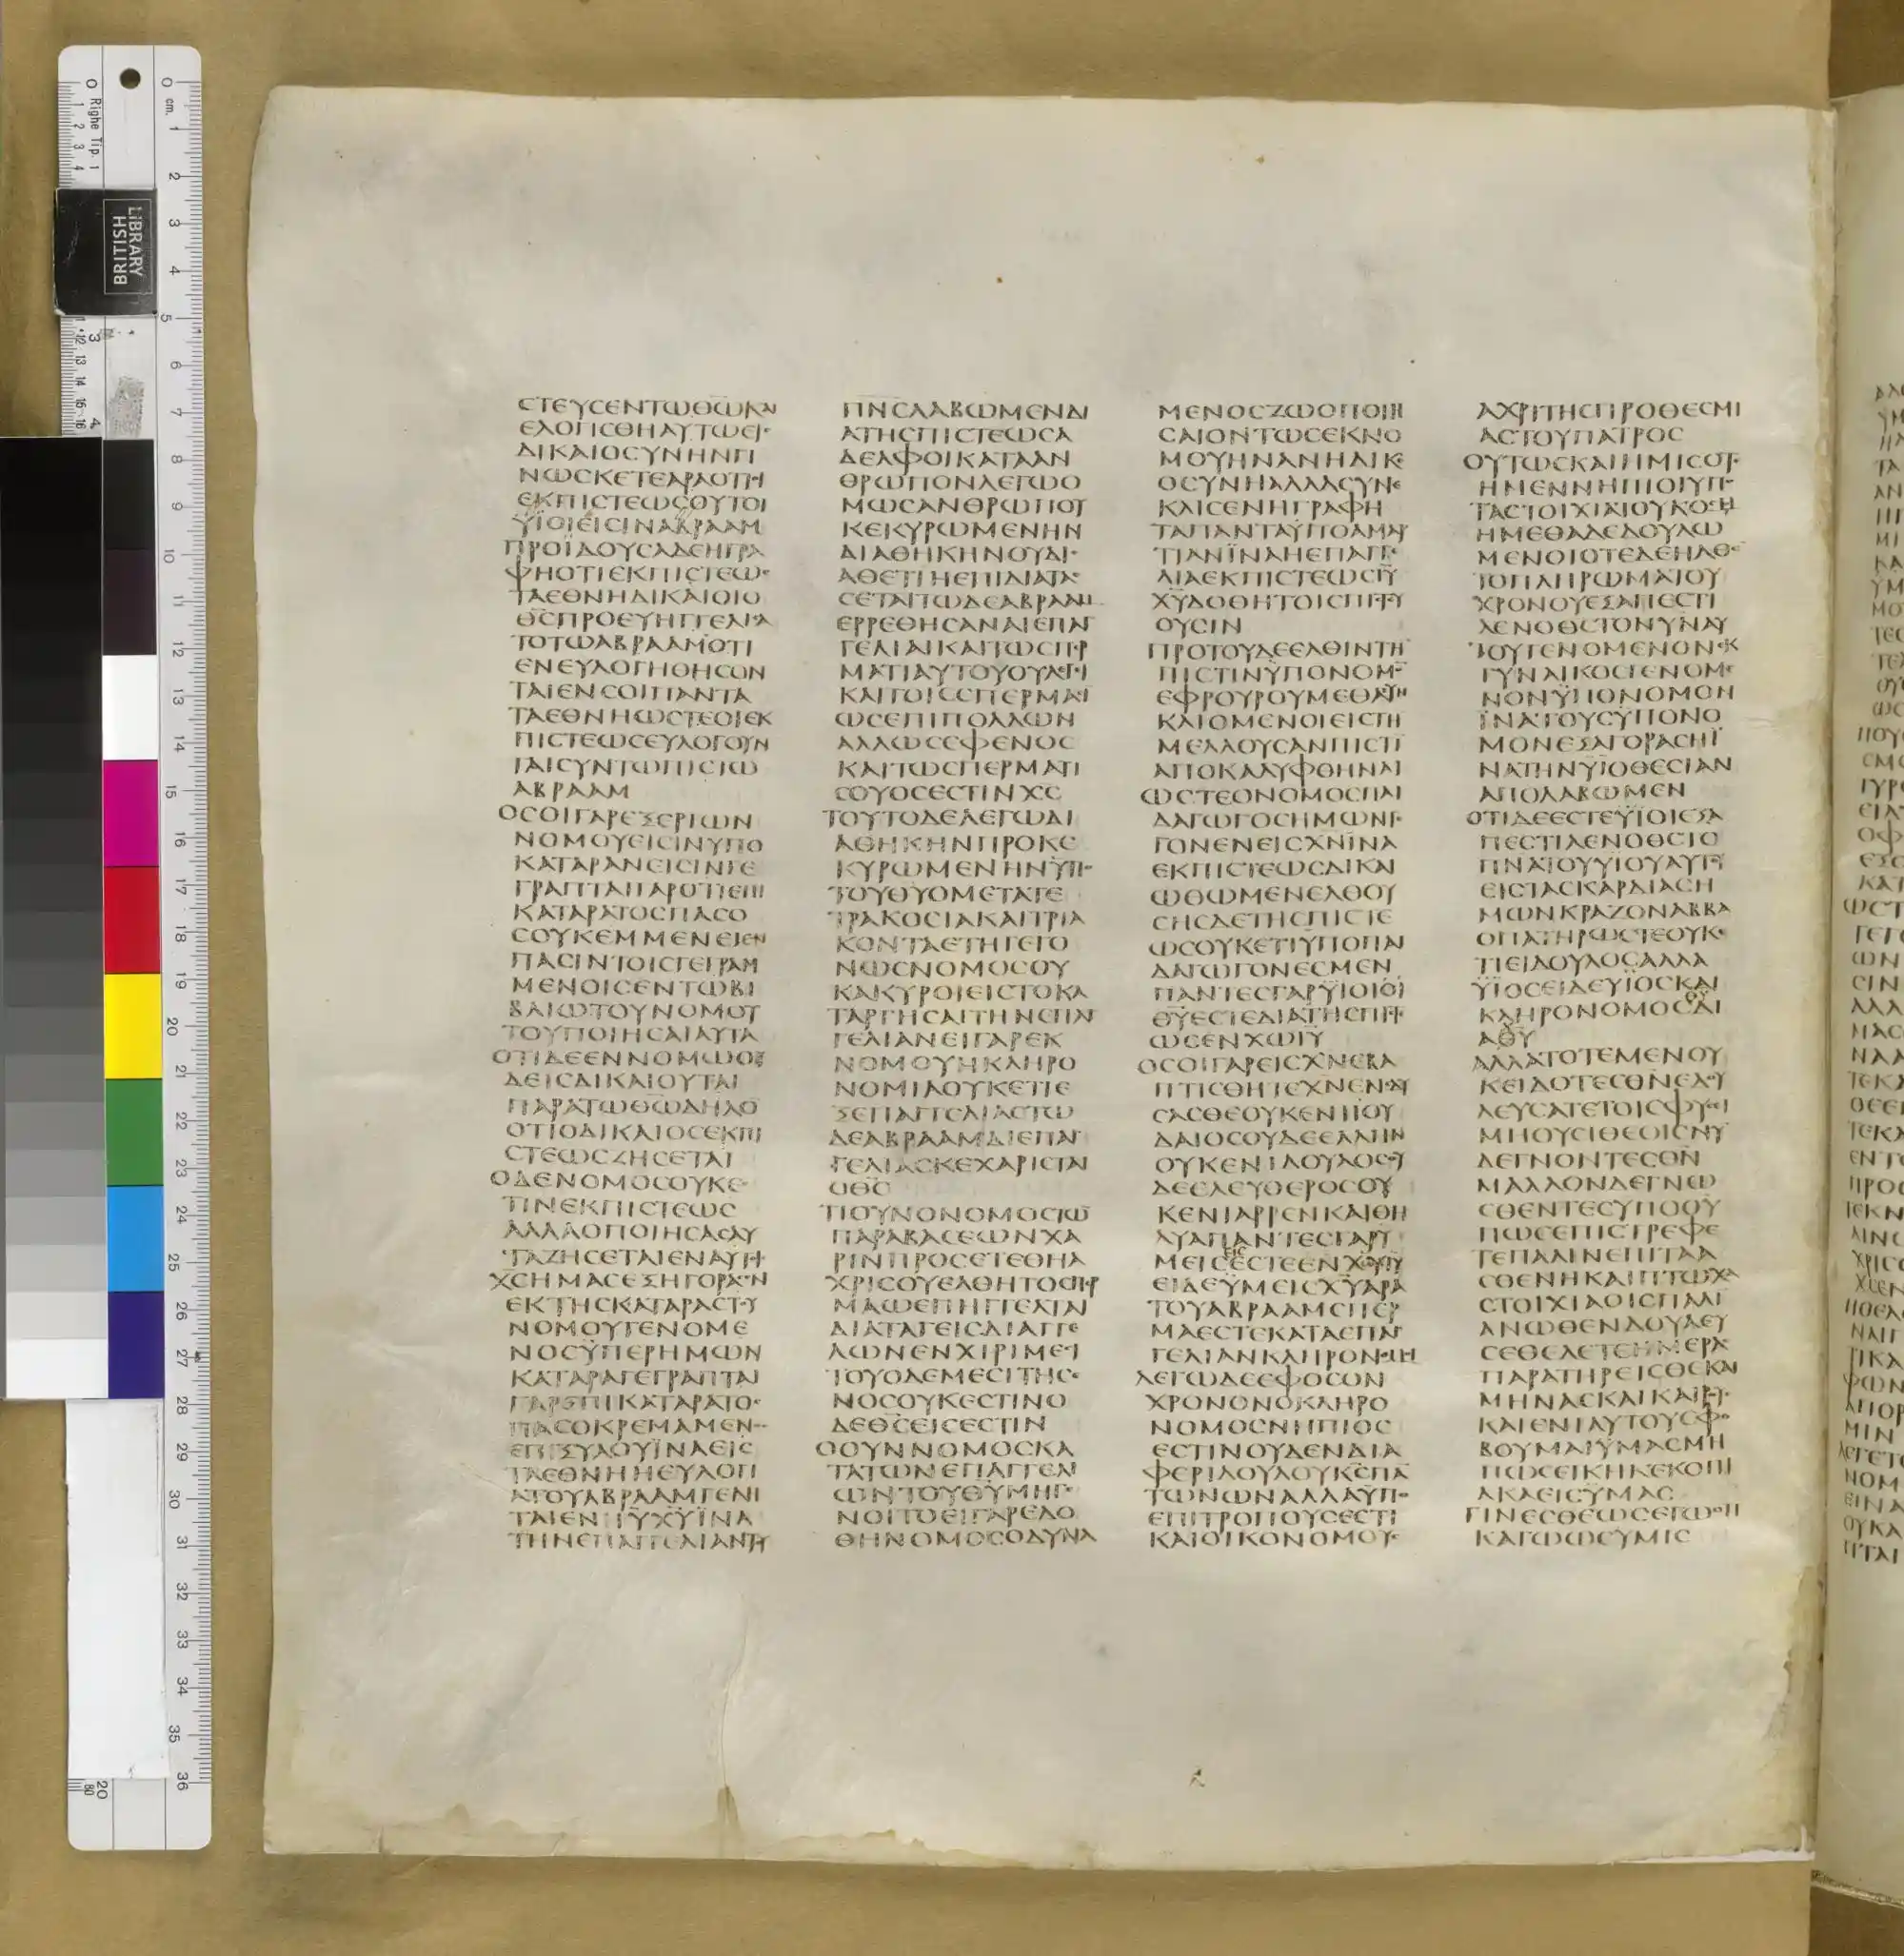 ΣΤΕΥΣΕΝΤΩΘΩΚΑΙ
ΕΛΟΓΙΣΘΗΑΥΤΩΕΙΣ
ΔΙΚΑΙΟΣΥΝΗΝΓΙ
ΝΩΣΚΕΤΕΑΡΑΟΤΙΟΙ
ΕΚΠΙΣΤΕΩΣΟΥΤΟΙ
ΫΙΟΙΕΙΣΙΝΑΒΡΑΑΜ
ΠΡΟΪΔΟΥΣΑΔΕΗΓΡΑ
ΦΗΟΤΙΕΚΠΙΣΤΕΩΣ
ΤΑΕΘΝΗΔΙΚΑΙΟΙΟ
ΘΣΠΡΟΕΥΗΓΓΕΛΙΣΑ
ΤΟΤΩΑΒΡΑΑΜΟΤΙ
ΕΝΕΥΛΟΓΗΘΗΣΟΝ
ΤΑΙΕΝΣΟΙΠΑΝΤΑ
ΤΑΕΘΝΗΩΣΤΕΟΙΕΚ
ΠΙΣΤΕΩΣΕΥΛΟΓΟΥΝ
ΤΑΙΣΥΝΤΩΠΙΣΤΩ
ΑΒΡΑΑΜ
ΟΣΟΙΓΑΡΕΞΕΡΓΩΝ
ΝΟΜΟΥΕΙΣΙΝΥΠΟ
ΚΑΤΑΡΑΝΕΙΣΙΝΓΕ
ΓΡΑΠΤΑΙΓΑΡΟΤΙΕΠΙ
ΚΑΤΑΡΑΤΟΣΠΑΣΟ
ΣΟΥΚΕΜΜΕΝΕΙΕΝ
ΠΑΣΙΝΤΟΙΣΓΕΓΡΑΜ
ΜΕΝΟΙΣΕΝΤΩΒΙ
ΒΛΙΩΤΟΥΝΟΜΟΥ
ΤΟΥΠΟΙΗΣΑΙΑΥΤΑ
ΟΤΙΔΕΕΝΝΟΜΩΟΥ
ΔΕΙΣΔΙΚΑΙΟΥΤΑΙ
ΠΑΡΑΤΩΘΩΔΗΛΟ
ΟΤΙΟΔΙΚΑΙΟΣΕΚΠΙ
ΣΤΕΩΣΖΗΣΕΤΑΙ
ΟΔΕΝΟΜΟΣΟΥΚΕ
ΤΙΝΕΚΠΙΣΤΕΩΣ
ΑΛΛΑΟΠΟΙΗΣΑΣΑΥ
ΤΑΖΗΣΕΤΑΙΕΝΑΥΤΟΙ
ΧΣΗΜΑΣΕΞΗΓΟΡΑΣΕΝ
ΕΚΤΗΣΚΑΤΑΡΑΣΤΟΥ
ΝΟΜΟΥΓΕΝΟΜΕ
ΝΟΣΫΠΕΡΗΜΩΝ
ΚΑΤΑΡΑΓΕΓΡΑΠΤΑΙ
ΓΑΡΕΠΙΚΑΤΑΡΑΤΟΣ
ΠΑΣΟΚΡΕΜΑΜΕΝΟΣ
ΕΠΙΞΥΛΟΥΪΝΑΕΙΣ
ΤΑΕΘΝΗΗΕΥΛΟΓΙ
ΑΤΟΥΑΒΡΑΑΜΓΕΝΗ
ΤΑΙΕΝΙΥΧΥΪΝΑ
ΤΗΝΕΠΑΓΓΕΛΙΑΝΤΟΥ
ΠΝΣΛΑΒΩΜΕΝΔΙ
ΑΤΗΣΠΙΣΤΕΩΣΑ
ΔΕΛΦΟΙΚΑΤΑΑΝ
ΘΡΩΠΟΝΛΕΓΩΟ
ΜΩΣΑΝΘΡΩΠΟΥ
ΚΕΚΥΡΩΜΕΝΗΝ
ΔΙΑΘΗΚΗΝΟΥΔΙΣ
ΑΘΕΤΙΗΕΠΙΔΙΑΤΑΣ
ΣΕΤΑΙΤΩΔΕΑΒΡΑΑΜ
ΕΡΡΕΘΗΣΑΝΑΙΕΠΑΓ
ΓΕΛΙΑΙΚΑΙΤΩΣΠΕΡ
ΜΑΤΙΑΥΤΟΥΟΥΛΕΓΙ
ΚΑΙΤΟΙΣΣΠΕΡΜΑΣΙ
ΩΣΕΠΙΠΟΛΛΩΝ
ΑΛΛΩΣΕΦΕΝΟΣ
ΚΑΙΤΩΣΠΕΡΜΑΤΙ
ΣΟΥΟΣΕΣΤΙΝΧΣ
ΤΟΥΤΟΔΕΛΕΓΩΔΙ
ΑΘΗΚΗΝΠΡΟΚΕ
ΚΥΡΩΜΕΝΗΝΫΠΟ
ΤΟΥΘΥΟΜΕΤΑΤΕ
ΤΡΑΚΟΣΙΑΚΑΙΤΡΙΑ
ΚΟΝΤΑΕΤΗΓΕΓΟ
ΝΩΣΝΟΜΟΣΟΥ
ΚΑΚΥΡΟΙΕΙΣΤΟΚΑ
ΤΑΡΓΗΣΑΙΤΗΝΕΠΑΓ
ΓΕΛΙΑΝΕΙΓΑΡΕΚ
ΝΟΜΟΥΗΚΛΗΡΟ
ΝΟΜΙΑΟΥΚΕΤΙΕ
ΞΕΠΑΓΓΕΛΙΑΣΤΩ
ΔΕΑΒΡΑΑΜΔΙΕΠΑΓ
ΓΕΛΙΑΣΚΕΧΑΡΙΣΤΑΙ
ΟΘΣ
ΤΙΟΥΝΟΝΟΜΟΣΤΩ
ΠΑΡΑΒΑΣΕΩΝΧΑ
ΡΙΝΠΡΟΣΕΤΕΘΗΑ
ΧΡΙΣΟΥΕΛΘΗΤΟΣΠΕΡ
ΜΑΩΕΠΗΓΓΕΛΤΑΙ
ΔΙΑΤΑΓΕΙΣΔΙΑΓΓΕ
ΛΩΝΕΝΧΙΡΙΜΕΣΙ
ΤΟΥΟΔΕΜΕΣΙΤΗΣΕ
ΝΟΣΟΥΚΕΣΤΙΝΟ
ΔΕΘΣΕΙΣΕΣΤΙΝ
ΟΟΥΝΝΟΜΟΣΚΑ
ΤΑΤΩΝΕΠΑΓΓΕΛΙ
ΩΝΤΟΥΘΥΜΗΓΕ
ΝΟΙΤΟΕΙΓΑΡΕΔΟ
ΘΗΝΟΜΟΣΟΔΥΝΑ
ΜΕΝΟΣΖΩΟΠΟΙΗ
ΣΑΙΟΝΤΩΣΕΚΝΟ
ΜΟΥΗΝΑΝΗΔΙΚΕ
ΟΣΥΝΗΑΛΛΑΣΥΝΕ
ΚΛΙΣΕΝΗΓΡΑΦΗ
ΤΑΠΑΝΤΑΫΠΟΑΜΑΡ
ΤΙΑΝΪΝΑΗΕΠΑΓΓΕ
ΛΙΑΕΚΠΙΣΤΕΩΣΙΥ
ΧΥΔΟΘΗΤΟΙΣΠΙΣΤΕΥ
ΟΥΣΙΝ
ΠΡΟΤΟΥΔΕΕΛΘΙΝΤΗ
ΠΙΣΤΙΝΫΠΟΝΟΜΟ
ΕΦΡΟΥΡΟΥΜΕΘΑΣΥΝ
ΚΛΙΟΜΕΝΟΙΕΙΣΤΗ
ΜΕΛΛΟΥΣΑΝΠΙΣΤΙ
ΑΠΟΚΑΛΥΦΘΗΝΑΙ
ΩΣΤΕΟΝΟΜΟΣΠΑΙ
ΔΑΓΩΓΟΣΗΜΩΝΓΕ
ΓΟΝΕΝΕΙΣΧΝΪΝΑ
ΕΚΠΙΣΤΕΩΣΔΙΚΑΙ
ΩΘΩΜΕΝΕΛΘΟΥ
ΣΗΣΔΕΤΗΣΠΙΣΤΕ
ΩΣΟΥΚΕΤΙΫΠΟΠΑΙ
ΔΑΓΩΓΟΝΕΣΜΕΝ
ΠΑΝΤΕΣΓΑΡΫΙΟΙΟΙ
ΘΥΕΣΤΕΔΙΑΤΗΣΠΙΣΤΕ
ΩΣΕΝΧΩΙΥ
ΟΣΟΙΓΑΡΕΙΣΧΝΕΒΑ
ΠΤΙΣΘΗΤΕΧΝΕΝΕΔΥ
ΣΑΣΘΕΟΥΚΕΝΙΙΟΥ
ΔΑΙΟΣΟΥΔΕΕΛΛΗΝ
ΟΥΚΕΝΙΔΟΥΛΟΣΟΥ
ΔΕΕΛΕΥΘΕΡΟΣΟΥ
ΚΕΝΙΑΡΡΕΝΚΑΙΘΗ
ΛΥΑΠΑΝΤΕΣΓΑΡΫ
ΕΙΣ
ΜΕΙΣΕΣΤΕΕΝΧΩΙΥ
ΕΙΔΕΫΜΕΙΣΧΥΑΡΑ
ΤΟΥΑΒΡΑΑΜΣΠΕΡ
ΜΑΕΣΤΕΚΑΤΑΕΠΑΓ
ΓΕΛΙΑΝΚΛΗΡΟΝΟΜΟΙ
ΛΕΓΩΔΕΕΦΟΣΟΝ
ΧΡΟΝΟΝΟΚΛΗΡΟ
ΝΟΜΟΣΝΗΠΙΟΣ
ΕΣΤΙΝΟΥΔΕΝΔΙΑ
ΦΕΡΙΔΟΥΛΟΥΚΣΠΑ
ΤΩΝΩΝΑΛΛΑΫΠΟ
ΕΠΙΤΡΟΠΟΥΣΕΣΤΙ
ΚΑΙΟΙΚΟΝΟΜΟΥΣ
ΑΧΡΙΤΗΣΠΡΟΘΕΣΜΙ
ΑΣΤΟΥΠΑΤΡΟΣ
ΟΥΤΩΣΚΑΙΗΜΙΣΟΤΕ
ΗΜΕΝΝΗΠΙΟΙΫΠΟ
ΤΑΣΤΟΙΧΙΑΤΟΥΚΟΣΜΟΥ
ΗΜΕΘΑΔΕΔΟΥΛΩ
ΜΕΝΟΙΟΤΕΔΕΗΛΘΕ
ΤΟΠΛΗΡΩΜΑΤΟΥ
ΧΡΟΝΟΥΕΞΑΠΕΣΤΙ
ΛΕΝΟΘΣΤΟΝΥΝΑΥ
ΤΟΥΓΕΝΟΜΕΝΟΝΕΚ
ΓΥΝΑΙΚΟΣΓΕΝΟΜΕ
ΝΟΝΫΠΟΝΟΜΟΝ
ΪΝΑΤΟΥΣΫΠΟΝΟ
ΜΟΝΕΞΑΓΟΡΑΣΗΪ
ΝΑΤΗΝΫΙΟΘΕΣΙΑΝ
ΑΠΟΛΑΒΩΜΕΝ
ΟΤΙΔΕΕΣΤΕΫΙΟΙΕΞΑ
ΠΕΣΤΙΛΕΝΟΘΣΤΟ
ΠΝΑΤΟΥΥΙΟΥΑΥΤΟΥ
ΕΙΣΤΑΣΚΑΡΔΙΑΣΗ
ΜΩΝΚΡΑΖΟΝΑΒΒΑ
ΟΠΑΤΗΡΩΣΤΕΟΥΚΕ
ΤΙΕΙΔΟΥΛΟΣΑΛΛΑ
ΫΙΟΣΕΙΔΕΫΙΟΣΚΑΙ
ΚΛΗΡΟΝΟΜΟΣΔΙ
ΑΘΥ
ΑΛΛΑΤΟΤΕΜΕΝΟΥ
ΚΕΙΔΟΤΕΣΘΝΕΔΟΥ
ΛΕΥΣΑΤΕΤΟΙΣΦΥΣΕΙ
ΜΗΟΥΣΙΘΕΟΙΣΝΥ
ΔΕΓΝΟΝΤΕΣΘΝ
ΜΑΛΛΟΝΔΕΓΝΩ
ΣΘΕΝΤΕΣΥΠΟΘΥ
ΠΩΣΕΠΙΣΤΡΕΦΕ
ΤΕΠΑΛΙΝΕΠΙΤΑΑ
ΣΘΕΝΗΚΑΙΠΤΩΧΑ
ΣΤΟΙΧΙΑΟΙΣΠΑΛΙ
ΑΝΩΘΕΝΔΟΥΛΕΥ
ΣΕΘΕΛΕΤΕΗΜΕΡΑ
ΠΑΡΑΤΗΡΕΙΣΘΕΚΑΙ
ΜΗΝΑΣΚΑΙΚΑΙΡΟΥΣ
ΚΑΙΕΝΙΑΥΤΟΥΣΦΟ
ΒΟΥΜΑΙΫΜΑΣΜΗ
ΠΩΣΕΙΚΗΚΕΚΟΠΙ
ΑΚΑΕΙΣΫΜΑΣ
ΓΙΝΕΣΘΕΩΣΕΓΩΟΤΙ
ΚΑΓΩΩΣΥΜΙΣ
BRITISH
LIBRARY